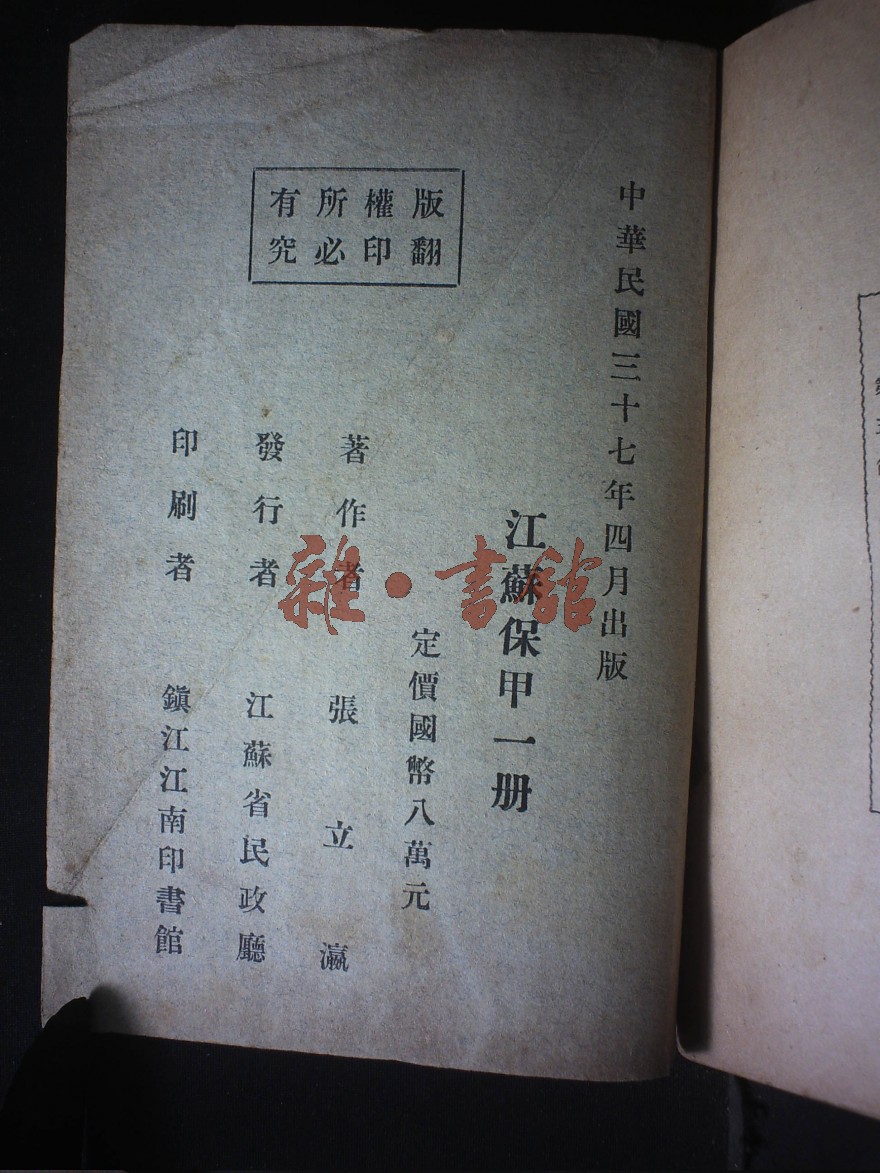 中華民國三十七年四月出版
江蘇保甲一册
定價國幣八萬元
著作者 張立瀛
發行者 江蘇省民政廳
印刷者 鎮江江南印書館
版權所有
翻印必究
雜·書館